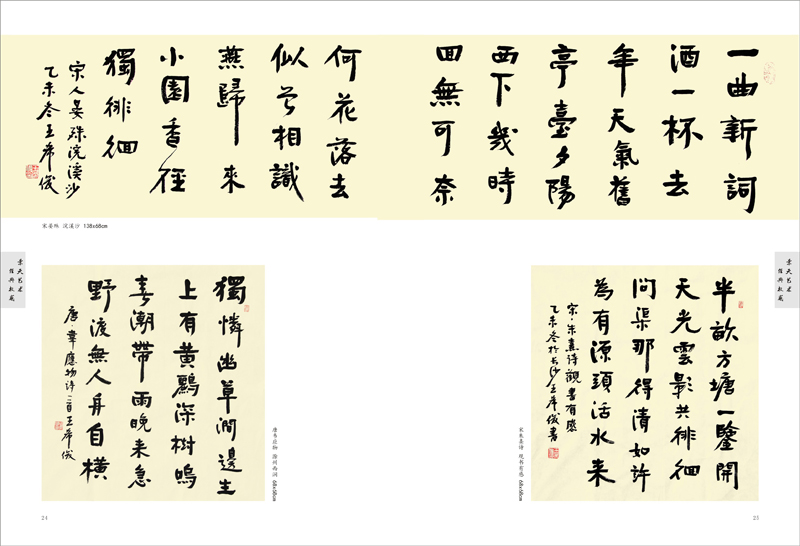 一曲新詞
酒一杯去
年天氣舊
亭臺夕陽
西下幾時
回無可奈
何花落去
似曾相識
燕歸來
小園香徑
獨徘徊
宋人晏殊浣溪沙
乙未冬王希俊
宋晏殊 浣溪沙 138x68cm
獨憐幽草澗邊生
上有黃鸝深樹鳴
春潮帶雨晚来急
野渡無人舟自橫
唐·韋應物诗一首王希俊
唐韦应物 滁州西涧 68x68cm
24
半畝方塘一鑒開
天光雲影共徘徊
問渠那得清如許
為有源頭活水来
宋·朱熹诗觀書有感
乙未冬於长沙王希俊書
宋朱熹诗 观书有感 68x68cm
25